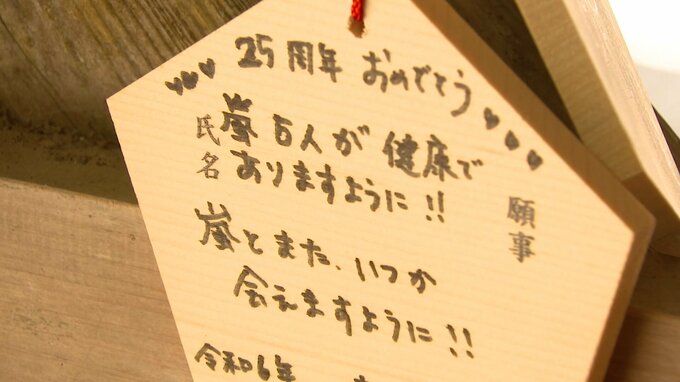 25周年 おめでとう
願事
氏名
嵐5人が 健康で
ありますように!!
嵐とまた、いつか
会えますように!!
令和6年